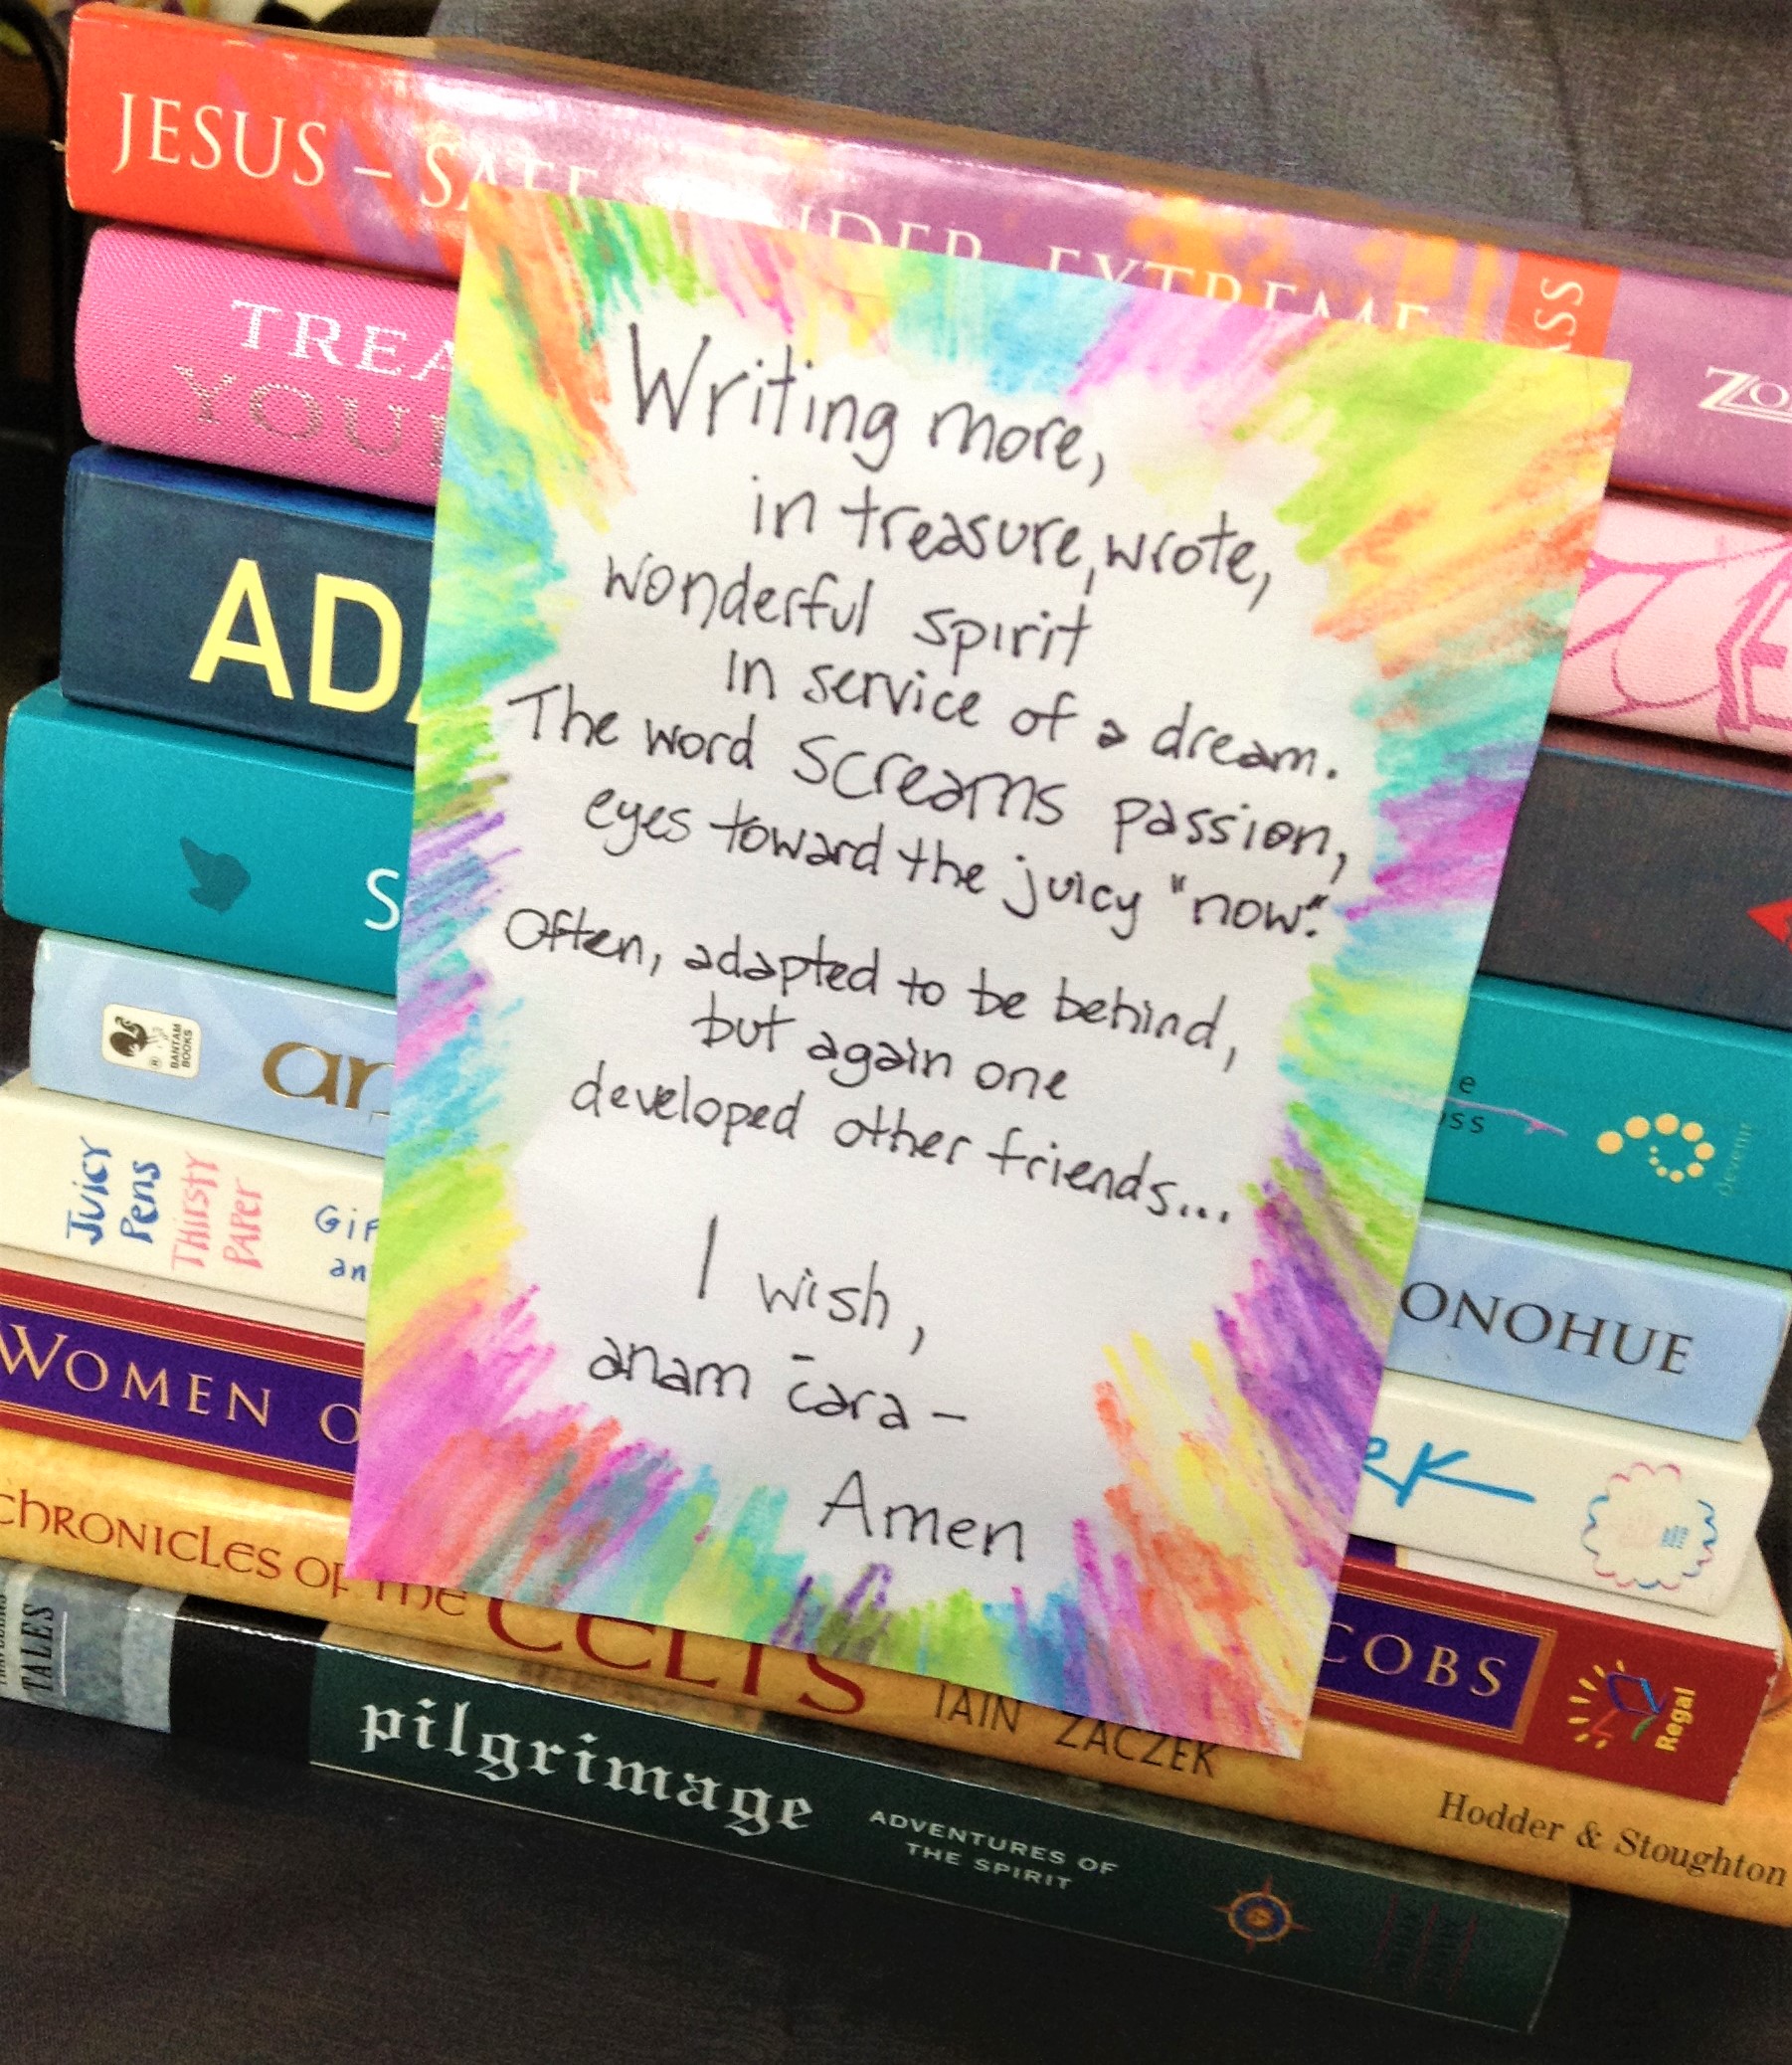 JESUS – SAFE TENDER EXTREME
ZO
TREA
YOU
AD
S
BANTAM
BOOKS
an
Juicy
Pens
Thirsty
Paper
Gif
an
WOMEN O
CHRONICLES OF THE CELTS
IAIN ZACZEK
Hodder & Stoughton
TALES
pilgrimage
ADVENTURES OF
THE SPIRIT
Writing more,
in treasure, wrote,
wonderful spirit
in service of a dream.
The word screams passion,
eyes toward the juicy "now."
Often, adapted to be behind,
but again one
developed other friends...
I wish,
anam c̄ara –
Amen
e
oss
ONOHUE
RK
COBS
Regal